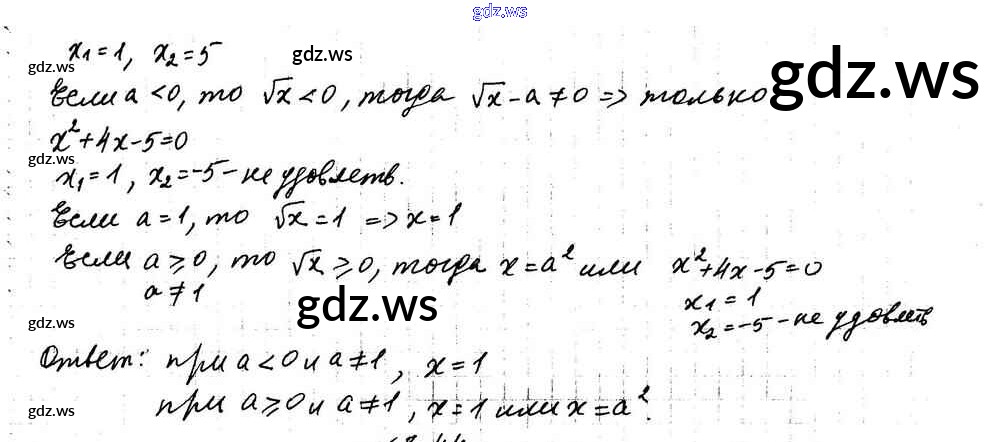 gdz.ws
x₁=1, x₂=5
gdz.ws
gdz.ws
gdz.ws
Если a<0, то √x<0, тогда √x-a≠0 => только
x²+4x-5=0
gdz.ws
x₁=1, x₂=-5-не удовлетв.
Если a=1, то √x=1 => x=1
gdz.ws
Если a⩾0, то √x⩾0, тогда x=a² или x²+4x-5=0
a≠1
x₁=1
gdz.ws
x₂=-5-не удовлетв
gdz.ws
Ответ: при a<0 и a≠1, x=1
при a⩾0 и a≠1, x=1 или x=a².
gdz.ws